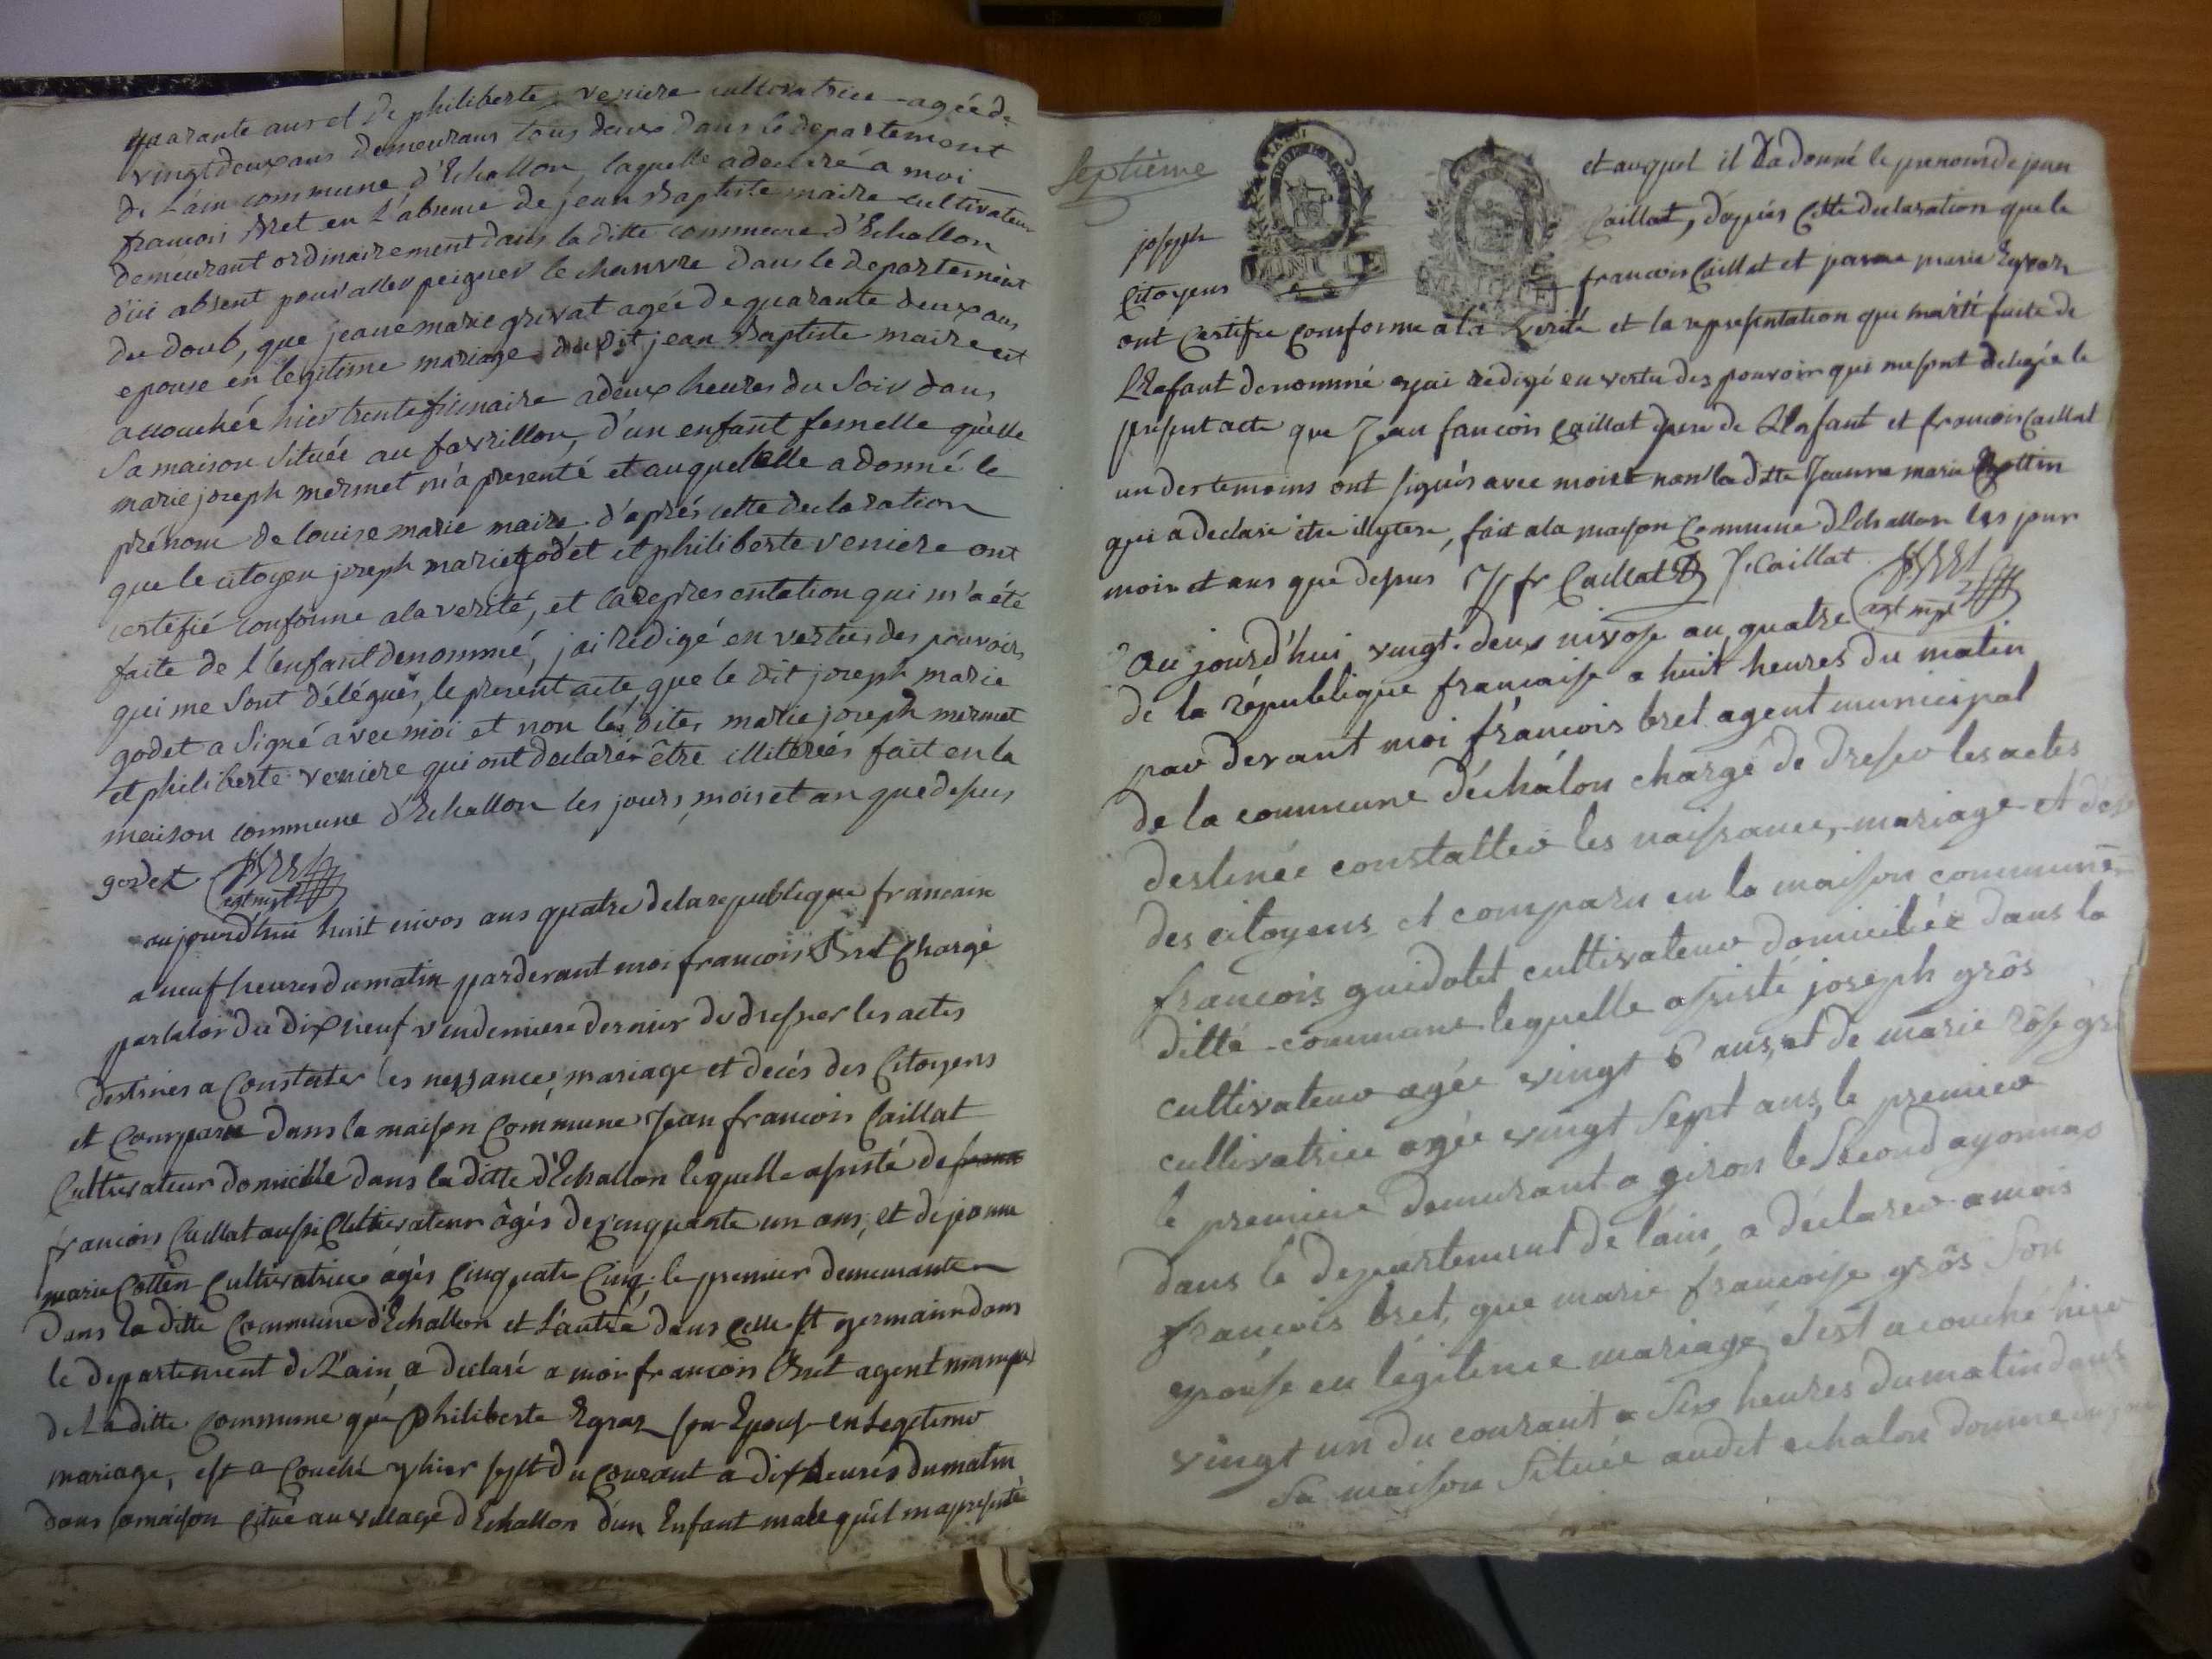 quarante ans et de philiberte veniere cultivatrice agée de
vingt deux ans demeurans tous deux dans le departement
de L'ain commune d'Echallon, laquelle a declaré a moi
francois Bret en L'absence de jean Baptiste maire cultivateur
demeurant ordinairement dans la ditte commune d'Echallon
d'ici absent pour aller peigner le chanvre dans le departement
du doub, que jeane marie grivat agée de quarante deux ans
epouse en legitime mariage du dit jean Baptiste maire est
accouchée hier trente frimaire a deux heures du soir dans
sa maison située au favrillon, d'un enfant femelle qu'elle
marie joseph mermet m'a presenté et auquel elle a donné le
prénom de louise marie maire d'aprés cette declaration
que le citoyen joseph marie godet et philiberte veniere ont
certifié conforme a la verité, et la representation qui m'a été
faite de l'enfant denommé, j'ai redigé en vertu des pouvoirs
qui me sont délégués, le present acte que le dit joseph marie
godet a signé avec moi et non les dites marie joseph mermet
et philiberte veniere qui ont declarér être illiterées fait en la
maison commune d'Echallon les jours, mois et an que depus
godet Bret
agt mpl
aujourdhui huit nivos ans quatre de la republique francaise
a neuf heures du matin parderant moi francois Bret Chargé
par la loi du dix neuf vendemiere dernier de dresser les actes
destinés a Constater les nessances, mariage et decés des Citoyens
et Comparu dans la maison Commune Jean francois Caillat
Cultivateur domicille dans la ditte d'Echallon lequelle assisté de
francois Caillat aussi Cultivateur âgés de Cinquante un ans, et de jeanne
marie Cottin Cultivatrice agés Cinquate Cinq, le premier demeurante
dans la ditte Commune d'Echallon et L'autre dans Celle St germain dans
le departement de L'ain, a declaré a moi francois Bret agent
de La ditte Commune que philiberte Egraz son Epous en Legetime
mariage, est a Couché yhier sept du Courant a dix heures du matin
dans sa maison Citué au village d'Echallon d'un Enfant male qu'il ma presenté
Septième
joseph
Citoyens
et auquel il a donné le prenom de jean
Caillat, d'apprés Cette declaration que le
francois Caillat et jeanne marie
ont Certifié Comforme a la verité et la representation qui ma été faite de
L'Enfant denommé ejai redigé en vertu des pouvoir qui me sont delegée le
present acte que Jean fancois Caillat pere de L'Enfant et francois Caillat
un des temoins ont signés avec moi et non la ditte Jeanne marie Cottin
qui a declaré être illytere, fait a la maison Commune d'Echallon les jour
mois et ans que depus J fr Caillat f. Caillat Bret
agt mpl
Au jourd'hui vingt-deux nivose an quatre
de la république francaise a huit heures du matin
par devant moi francois bret agent municipal
de la commune d'échalon chargé de dresser les actes
destinée constatter les naissance, mariage et
des citoyens et comparu en la maison commune
francois guidotet cultivateur domiciliée dans la
ditte commune lequelle assisté joseph grôs
cultivateur agée vingt 6 ans, et de marie rôse
cultivatrice agée vingt sept ans, le premier
le premier demeurant a giron le second ayonnas
dans le departement de l'ain, a déclarer a mois
francois bret, que marie francoise grôs son
epouse en légitime mariage, s'est acouché hier
vingt un du courant a six heures du matin dans
sa maison située audit echalon